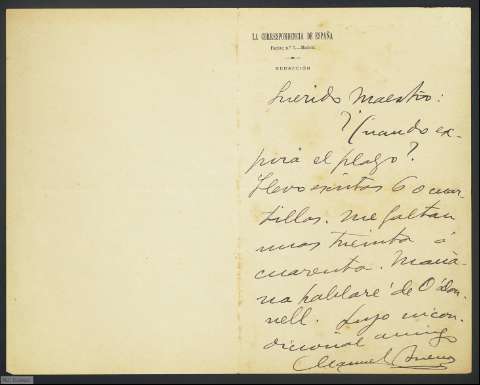 LA CORRESPONDENCIA DE ESPAÑA
Factor, n.º 7.—Madrid
REDACCIÓN
Querido Maestro:
? Cuando ex-
pira el plazo?
Llevo escritas 60 cuar-
tillas. Me faltan
unas treinta á
cuarenta. Maña-
na hablaré de O'don-
nell. Suyo incon-
dicional amigo
Manuel Bueno